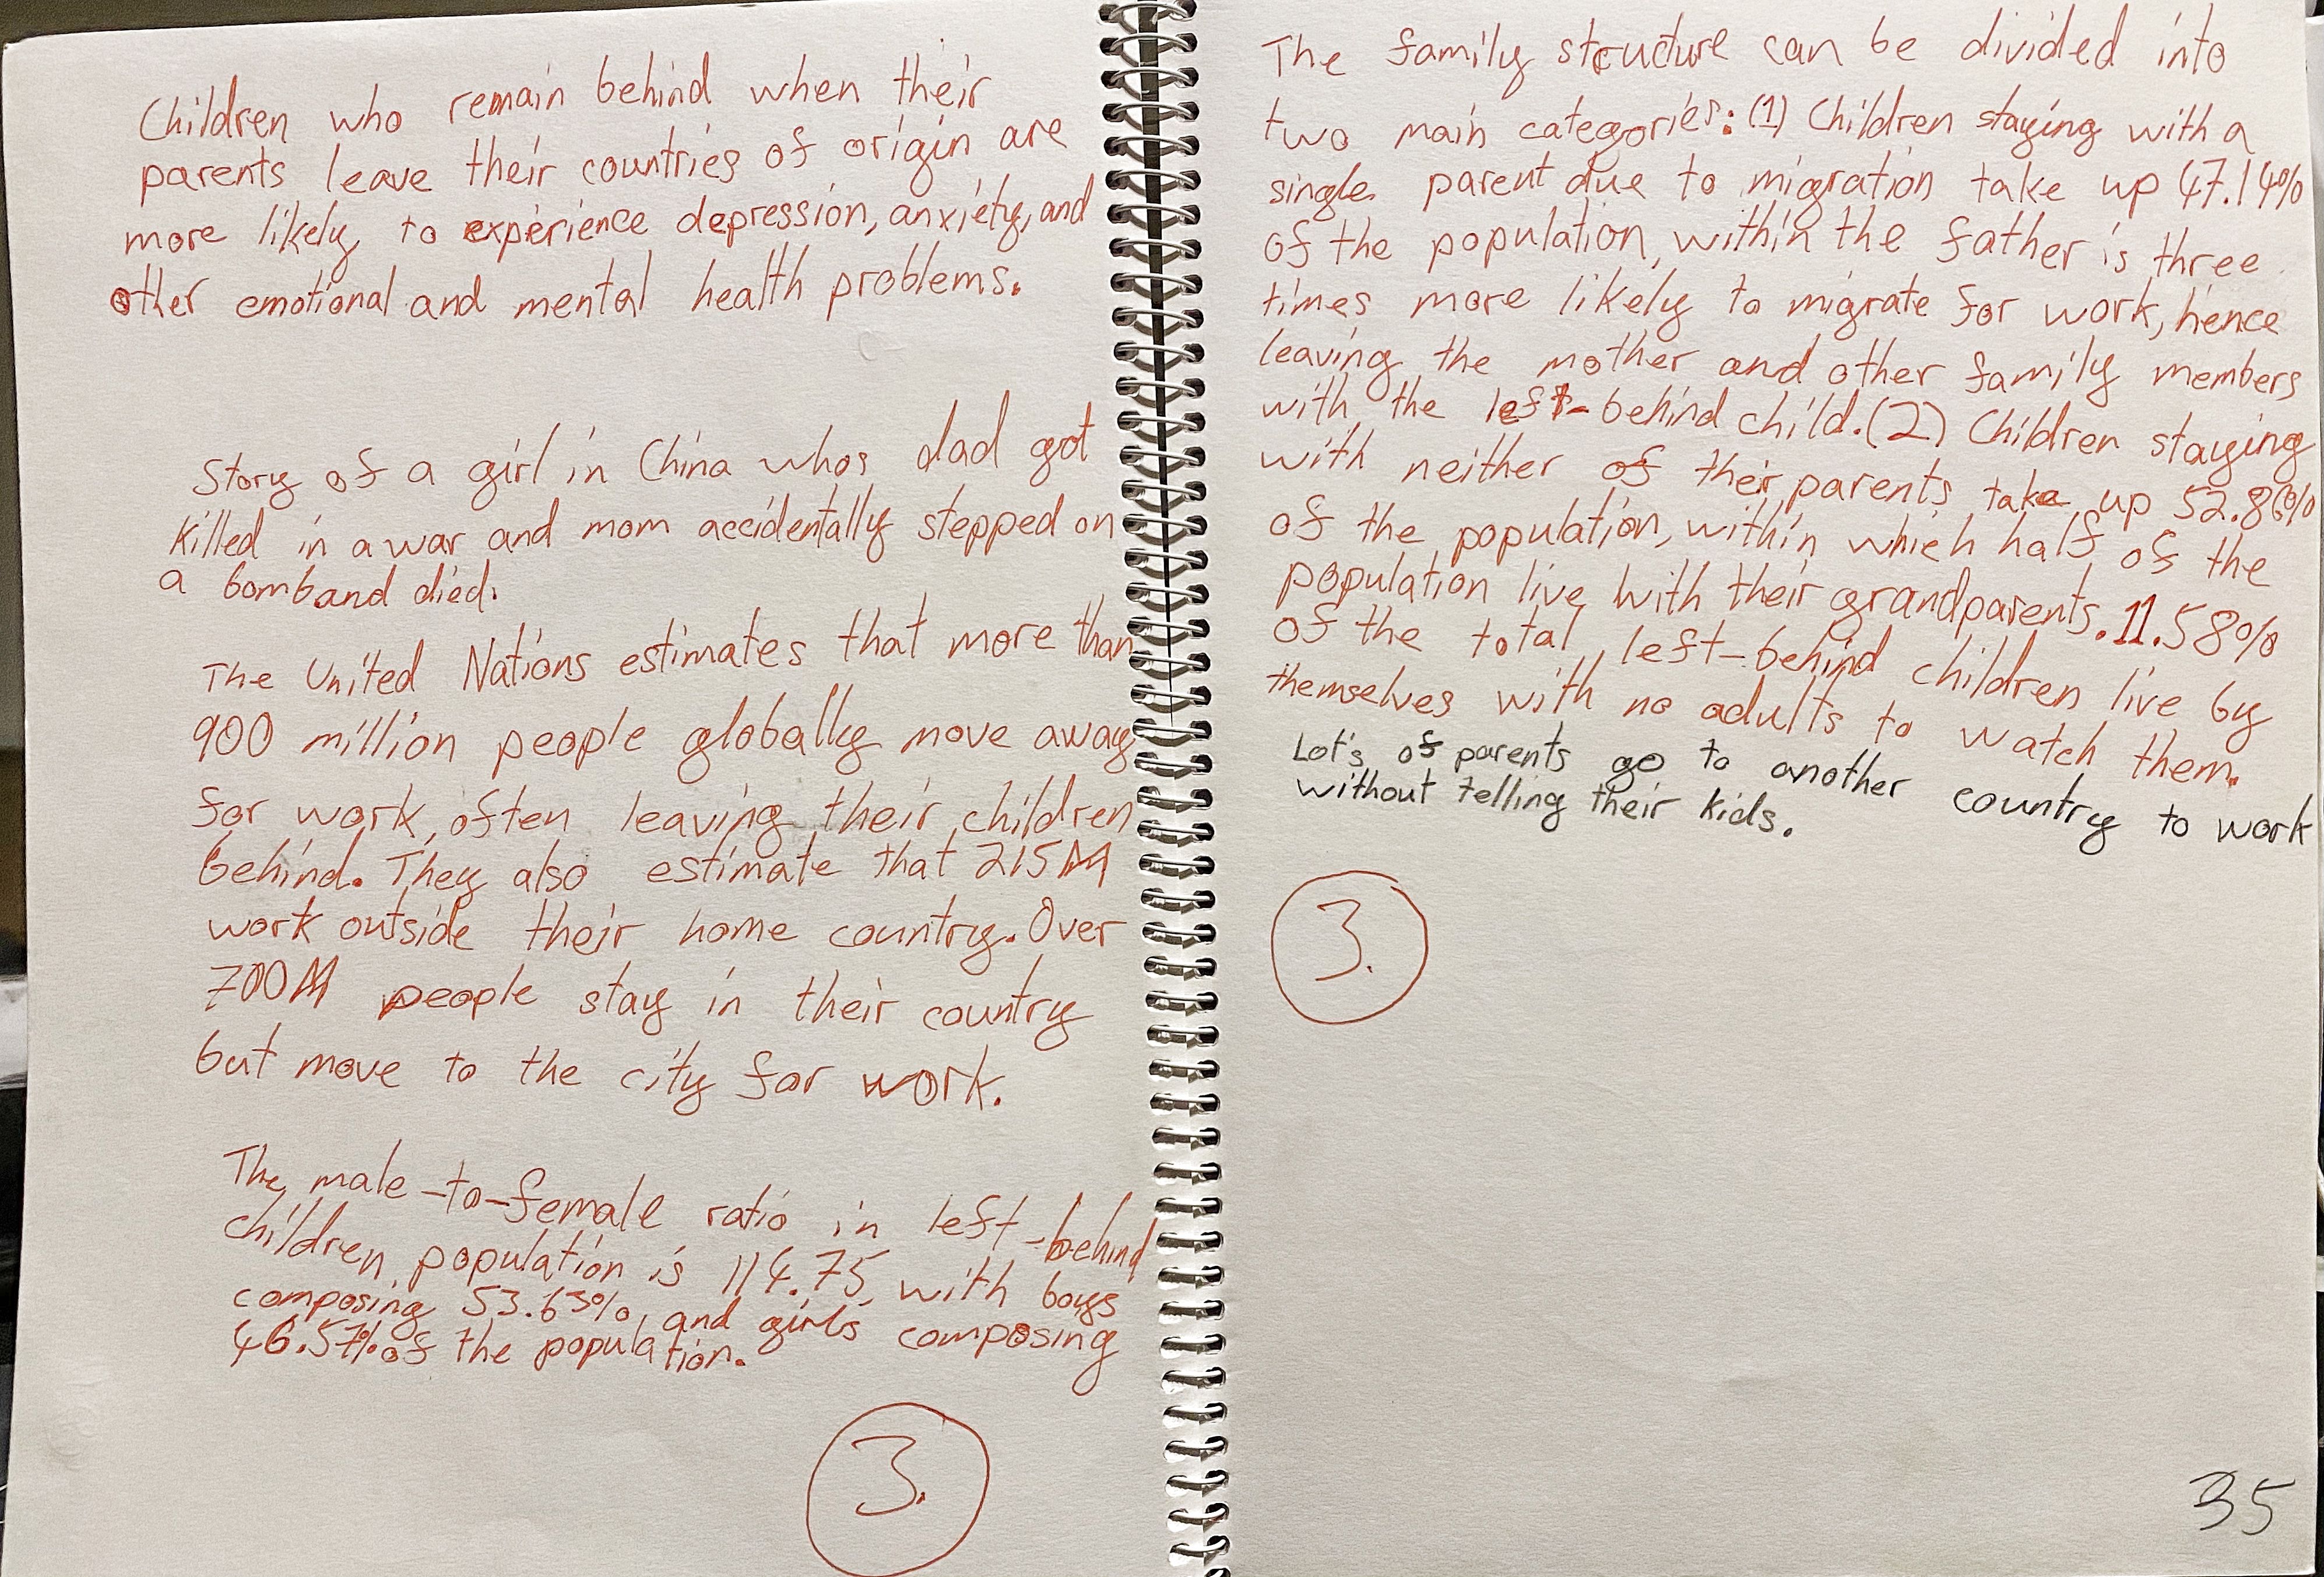 Children who remain behind when their
parents leave their countries of origin are
more likely to experience depression, anxiety, and
other emotional and mental health problems.
Story of a girl in China whos dad got
killed in a war and mom accidentally stepped on
a bomb and died.
The United Nations estimates that more than
900 million people globally move away
for work, often leaving their children
behind. They also estimate that 215M
work outside their home country. Over
700M people stay in their country
but move to the city for work.
The male-to-female ratio in left-behind
children population is 114.75, with boys
composing 53.63%, and girls composing
46.57% of the population.
3.
The family structure can be divided into
two main categories: (1) Children staying with a
single parent due to migration take up 47.14%
of the population, within the father is three
times more likely to migrate for work, hence
leaving the mother and other family members
with the left-behind child. (2) Children staying
with neither of their parents take up 52.86%
of the population, within which half of the
population live with their grandparents. 11.58%
of the total left-behind children live by
themselves with no adults to watch them.
Lot's of parents go to another country to work
without telling their kids.
3.
35